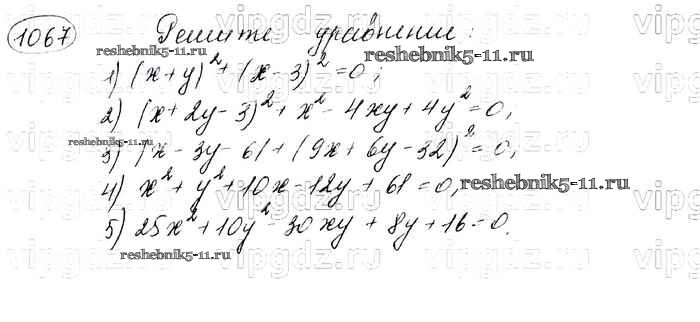 1067 Решите уравнение:
reshebnik5-11.ru
reshebnik5-11.ru
1) (x+y)²+(x-3)²=0;
2) (x+2y-3)²+x²-4xy+4y²=0;
reshebnik5-11.ru
3) |x-3y-6|+(9x+6y-32)²=0;
4) x²+y²+10x-12y+61=0;
reshebnik5-11.ru
5) 25x²+10y²-30xy+8y+16=0.
reshebnik5-11.ru
vipgdz.ru